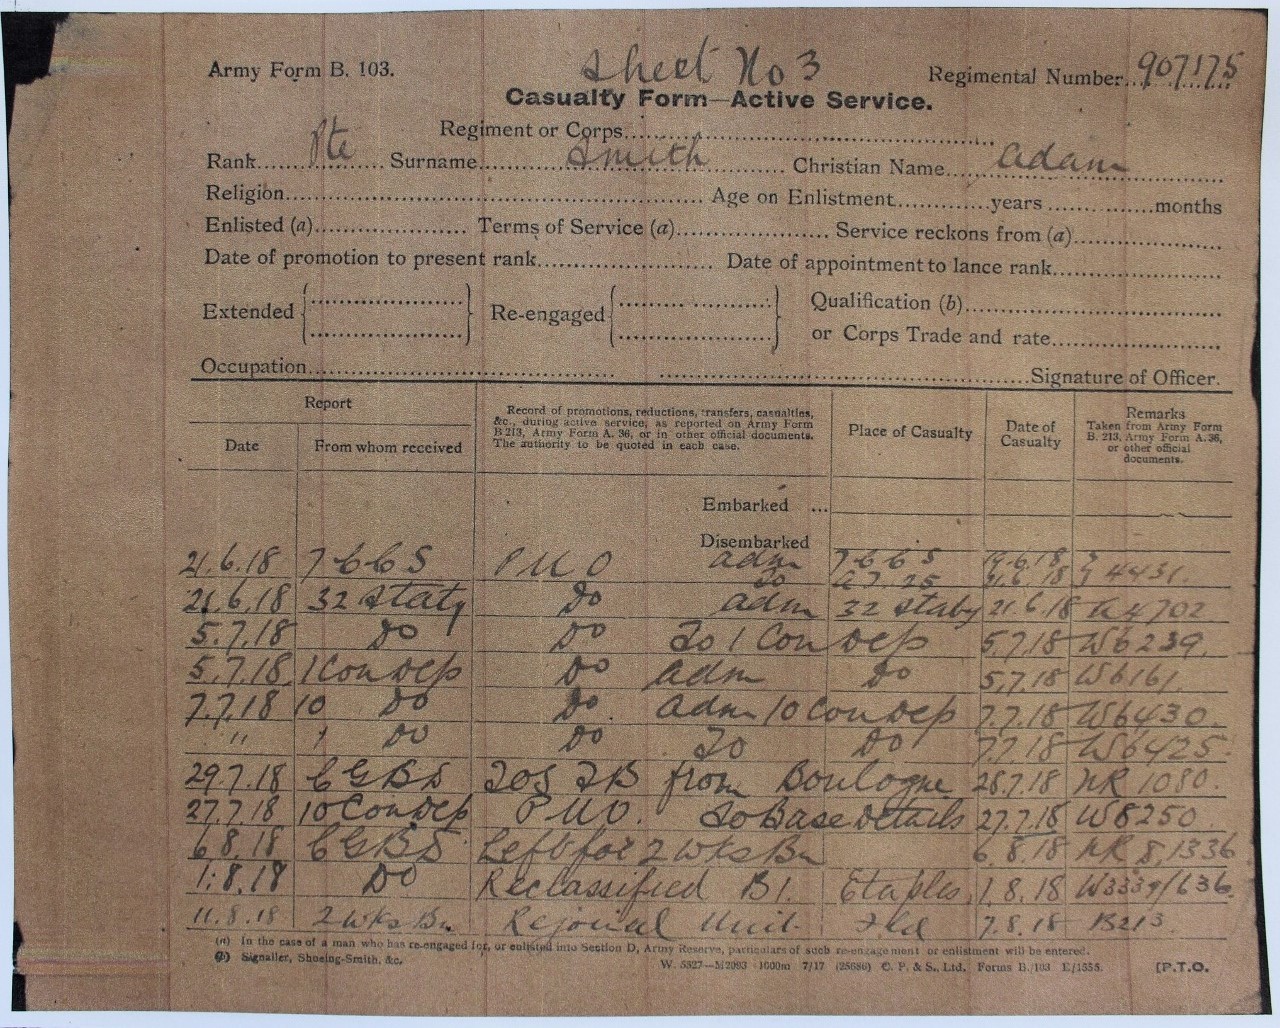 Sheet No 3
Army Form B. 103.
Regimental Number 907175
Casualty Form—Active Service.
Regiment or Corps
Rank Pte Surname Smith Christian Name Adam
Religion Age on Enlistment years months
Enlisted (a) Terms of Service (a) Service reckons from (a)
Date of promotion to present rank Date of appointment to lance rank
Extended Re-engaged Qualification (b)
or Corps Trade and rate
Occupation Signature of Officer.
Report
Date From whom received
Record of promotions, reductions, transfers, casualties, &c., during active service, as reported on Army Form B 213, Army Form A. 36, or in other official documents. The authority to be quoted in each case.
Place of Casualty
Date of Casualty
Remarks Taken from Army Form B. 213, Army Form A. 36, or other official documents.
Embarked ...
Disembarked
21.6.18 7 CCS PUO adm 7 CCS 19.6.18
To AT. 25 21.6.18 4431
21.6.18 32 Staty Do adm 32 Staty 21.6.18 4702
5.7.18 Do Do To 1 Con Dep 5.7.18 W6239
5.7.18 1 Con Dep Do adm Do 5.7.18 W6161
7.7.18 10 Do Do adm 10 Con Dep 7.7.18 W6430
" 1 Do Do To Do 7.7.18 W6425
29.7.18 CGBD TOS TB from Boulogne 28.7.18 NR 1080
27.7.18 10 Con Dep PUO. To Base Details 27.7.18 W8250
6.8.18 CGBD Left for 2 Wks Bn 6.8.18 NR 8,1336
1.8.18 Do Reclassified B1. Etaples 1.8.18 W3339/636
11.8.18 2 Wks Bn Rejoined Unit Fld 7.8.18 B213
(a) In the case of a man who has re-engaged for, or enlisted into Section D, Army Reserve, particulars of such re-engagement or enlistment will be entered.
(b) Signaller, Shoeing-Smith, &c.
W. 5527—M2093 1000m 7/17 (25686) C. P. & S., Ltd. Forms B./103 E/1555. [P.T.O.